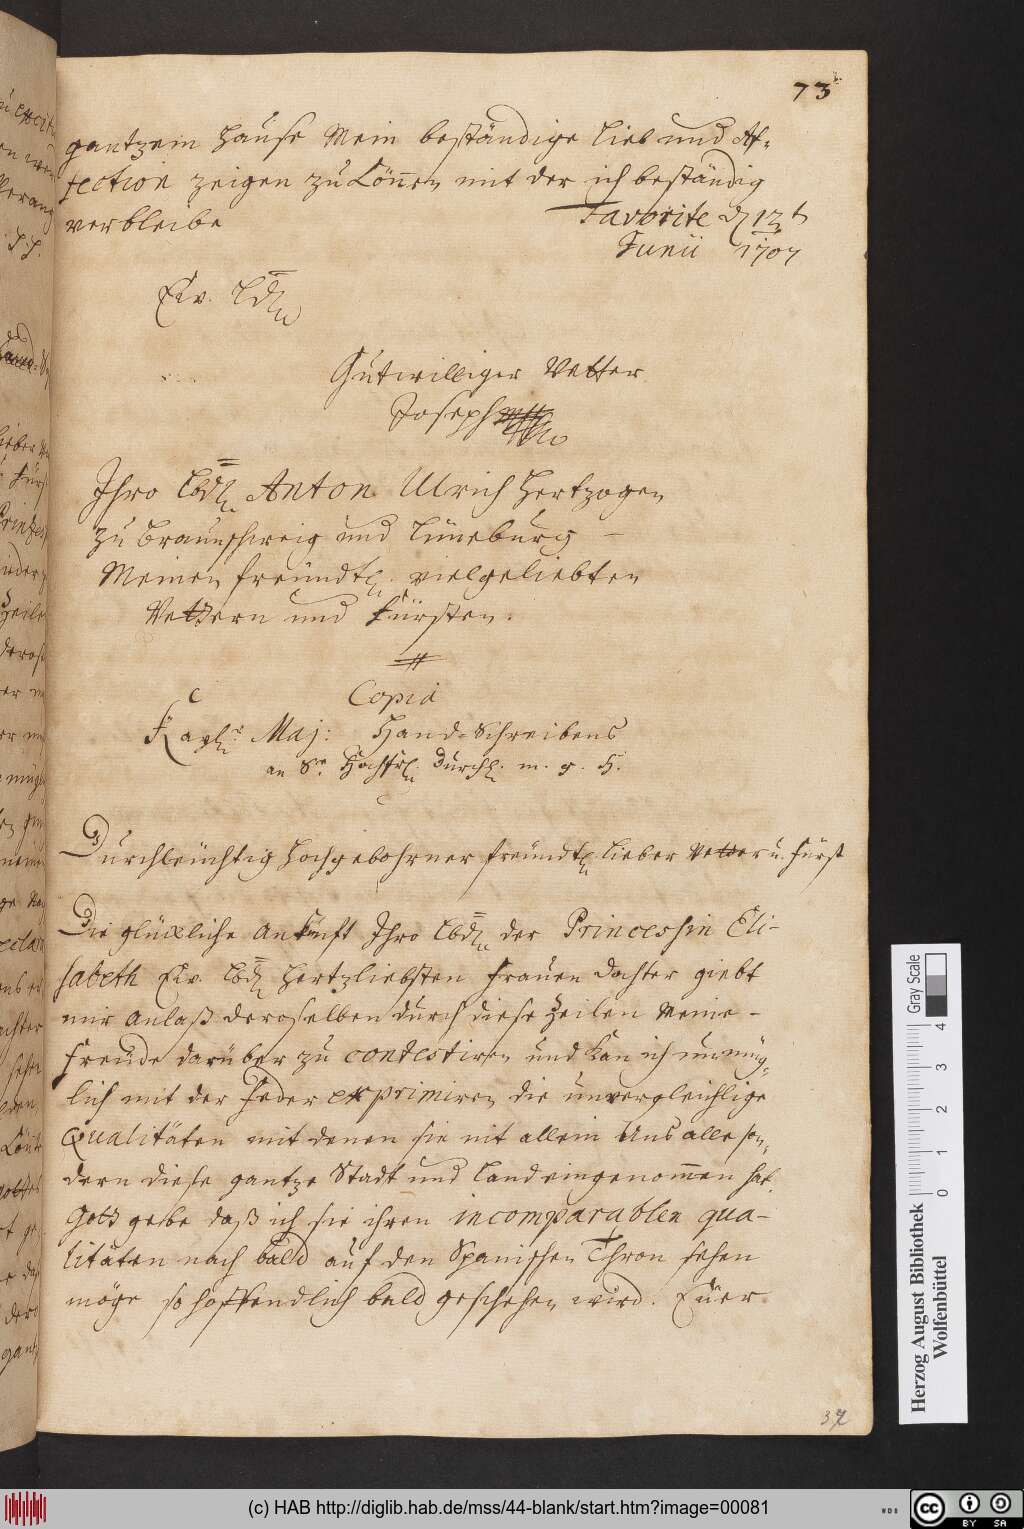 73
gantzem Hause Mein beständige Lieb und Af=
fection zeigen zu Könen mit der ich beständig
verbleibe Favorite d 12t
Junii 1707
Ew. Lbdn
Gutwilliger Vetter
Joseph
Ihro Lbdn Anton Ulrich Hertzogen
zu Braunschweig und Lüneburg -
Meinen freündtl. vielgeliebten
Vettern und Fürsten.
Copia
Kayslr Maj: Hand-Schreibens
an Sr. Hochfrl. Durchl. m. g. H.
Durchleüchtig Hochgebohrner freündtl. lieber Vetter u. Fürst
Die glückliche Ankunft Ihro Lbdn der Princessin Eli-
sabeth Ew. Lbdn Hertzliebsten Frauen Dochter giebt
mir Anlaß deroselben durch diese Zeilen Meine -
Freüde darüber zu contestiren und kan ich unmüg=
lich mit der Feder exprimiren die unvergleichlige
Qualitäten mit denen sie nit allein Uns alle son=
dern diese gantze Stadt und Land eingenomen hat.
Gott gebe daß ich sie ihren incomparablen qua-
litäten nach bald auf den Spanischen Thron sehen
möge so hoffendlich bald geschehen wird. Euer
37
Gray Scale
0 1 2 3 4
Herzog August Bibliothek
Wolfenbüttel
(c) HAB http://diglib.hab.de/mss/44-blank/start.htm?image=00081
WDB
cc BY SA